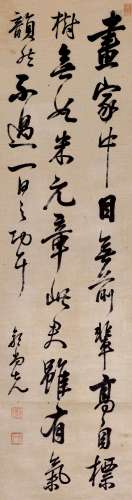 畫家中目無前輩高自標
樹無如朱元章此老雖有氣
韻然不過一日之功耳